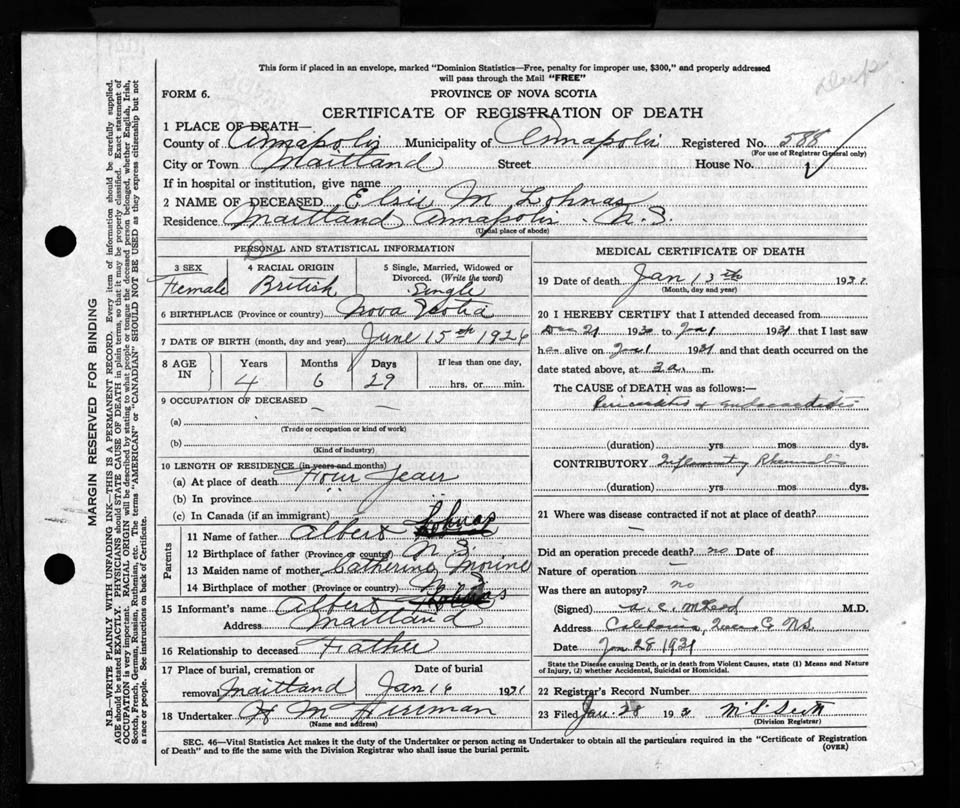 This form if placed in an envelope, marked "Dominion Statistics—Free, penalty for improper use, $300," and properly addressed
will pass through the Mail "FREE"
FORM 6.
PROVINCE OF NOVA SCOTIA
CERTIFICATE OF REGISTRATION OF DEATH
1 PLACE OF DEATH—
County of Annapolis Municipality of Annapolis Registered No. 588
(For use of Registrar General only)
City or Town Maitland Street House No.
If in hospital or institution, give name
2 NAME OF DECEASED Elsie M Lohnas
Residence Maitland Annapolis N.S.
(Usual place of abode)
PERSONAL AND STATISTICAL INFORMATION
3 SEX Female
4 RACIAL ORIGIN British
5 Single, Married, Widowed or Divorced. (Write the word) Single
6 BIRTHPLACE (Province or country) Nova Scotia
7 DATE OF BIRTH (month, day and year) June 15th 1926
8 AGE IN Years 4 Months 6 Days 29 If less than one day, hrs. or min.
9 OCCUPATION OF DECEASED
(a) —
(Trade or occupation or kind of work)
(b)
(Kind of industry)
10 LENGTH OF RESIDENCE (in years and months)
(a) At place of death Four Years
(b) In province
(c) In Canada (if an immigrant)
Parents
11 Name of father Albert Lohnas
12 Birthplace of father (Province or country) N.S.
13 Maiden name of mother Catherine Morine
14 Birthplace of mother (Province or country) N.S.
15 Informant's name Albert Lohnas
Address Maitland
16 Relationship to deceased Father
17 Place of burial, cremation or removal Maitland Date of burial Jan 16 1931
18 Undertaker H M Hirtman
(Name and address)
MEDICAL CERTIFICATE OF DEATH
19 Date of death Jan 13th 1931
(Month, day and year)
20 I HEREBY CERTIFY that I attended deceased from
Dec 21 1930 to Jan 1 1931 that I last saw
her alive on Jan 1 1931 and that death occurred on the
date stated above, at 2 a. m.
The CAUSE of DEATH was as follows:—
Pericarditis & Endocarditis
(duration) yrs mos dys.
CONTRIBUTORY Inflammatory Rheumatism
(duration) yrs mos dys.
21 Where was disease contracted if not at place of death?
—
Did an operation precede death? no Date of
Nature of operation —
Was there an autopsy? no
(Signed) A. C. McLeod M.D.
Address Caledonia, Queens Co NS
Date Jan 28 1931
State the Disease causing Death, or in death from Violent Causes, state (1) Means and Nature
of Injury, (2) whether Accidental, Suicidal or Homicidal.
22 Registrar's Record Number
23 Filed Jan. 28 193
(Division Registrar)
SEC. 46—Vital Statistics Act makes it the duty of the Undertaker or person acting as Undertaker to obtain all the particulars required in the "Certificate of Registration
of Death" and to file the same with the Division Registrar who shall issue the burial permit.
(OVER)
MARGIN RESERVED FOR BINDING
N.B.—WRITE PLAINLY WITH UNFADING INK—THIS IS A PERMANENT RECORD. Every item of information should be carefully supplied.
AGE should be stated EXACTLY. PHYSICIANS should STATE CAUSE OF DEATH in plain terms, so that it may be properly classified. Exact statement of
OCCUPATION is very important. RACIAL ORIGIN will be described by stating to what people or tongue the deceased person belonged, whether English, Irish,
Scotch, French, German, Russian, Ruthenian, etc. The terms "AMERICAN" or "CANADIAN" SHOULD NOT BE USED as they express citizenship but not
a race or people. See instructions on back of Certificate.